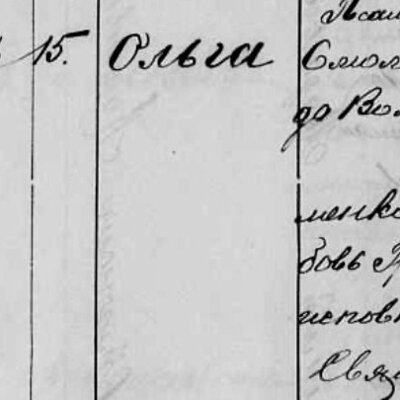 15. Ольга
до Во
менко
бовь
исповѣ
Свя